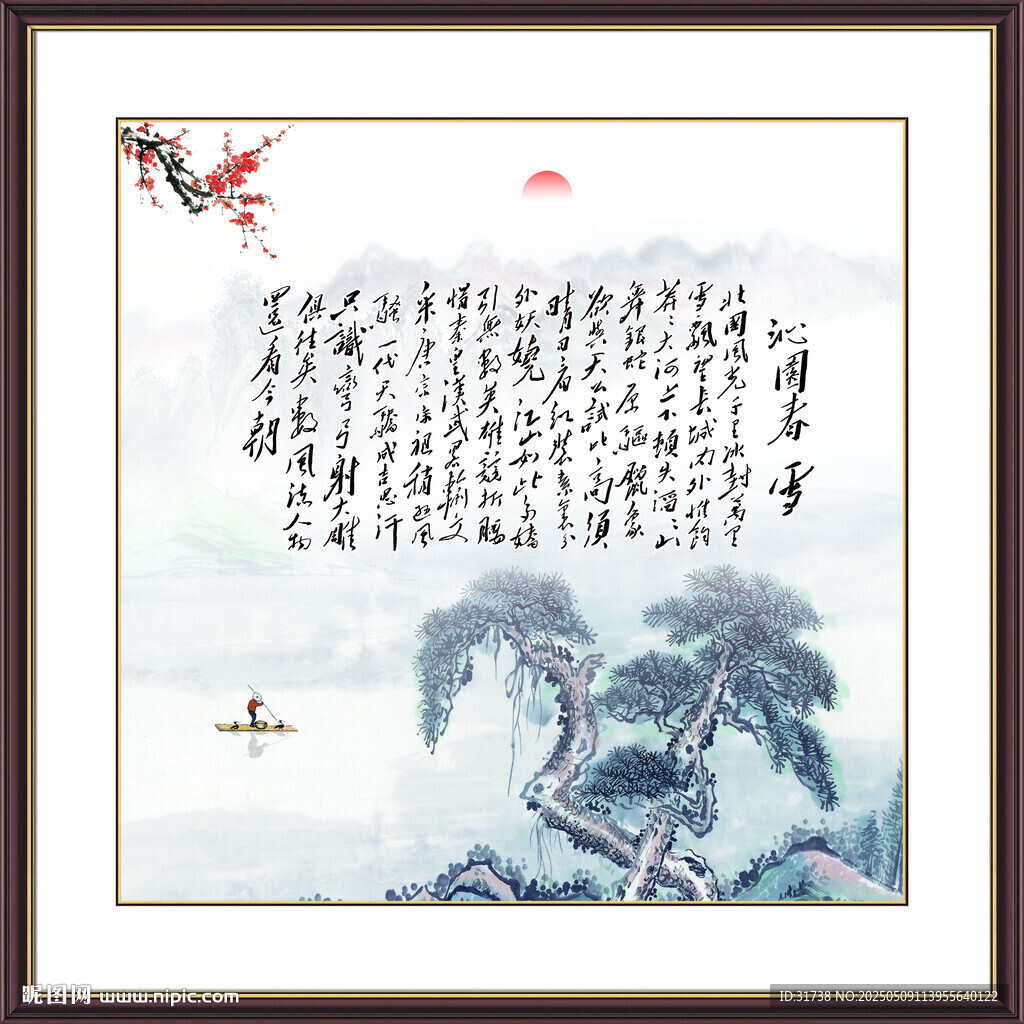 沁園春 雪
北國風光千里冰封萬里
雪飄望長城內外惟餘
莽〻大河上下頓失滔〻山
舞銀蛇原驅臘象
欲與天公試比高須
晴日看紅裝素裹分
外妖嬈江山如此多嬌
引無數英雄競折腰
惜秦皇漢武略輸文
采唐宗宋祖稍遜風
騷一代天驕成吉思汗
只識彎弓射大雕
俱往矣數風流人物
還看今朝
昵图网 www.nipic.com
ID:31738 NO:20250509113955640122